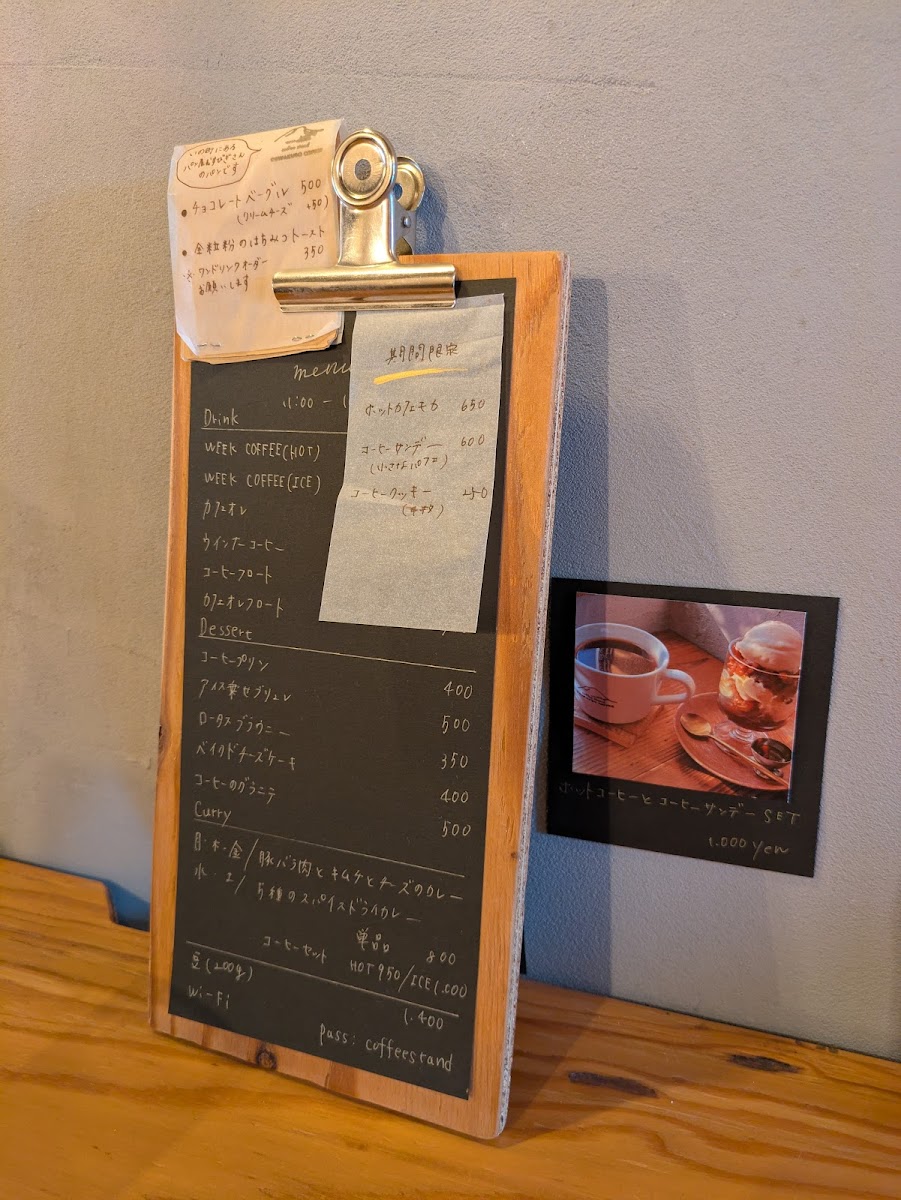 いの町にある
パン屋
のパンです
coffee stand
・チョコレートベーグル 500
(クリームチーズ +50)
・全粒粉のはちみつトースト
350
※ワンドリンクオーダー
お願いします
期間限定
ホットカフェモカ 650
コーヒーサンデー 600
(小さなパフェ)
コーヒークッキー 250
menu
11:00 –
Drink
WEEK COFFEE(HOT)
WEEK COFFEE(ICE)
カフェオレ
ウインナーコーヒー
コーヒーフロート
カフェオレフロート
Dessert
コーヒープリン 400
アイス葉セブリュレ 500
ロータスブラウニー 350
ベイクドチーズケーキ 400
コーヒーのグラニテ 500
Curry
月・木・金/豚バラ肉とキムチとチーズのカレー
水・土/5種のスパイスドライカレー
単品 800
コーヒーセット HOT 950/ICE 1.000
豆(200g) 1.400
Wi-Fi
pass: coffeestand
ホットコーヒーとコーヒーサンデー SET
1.000 yen